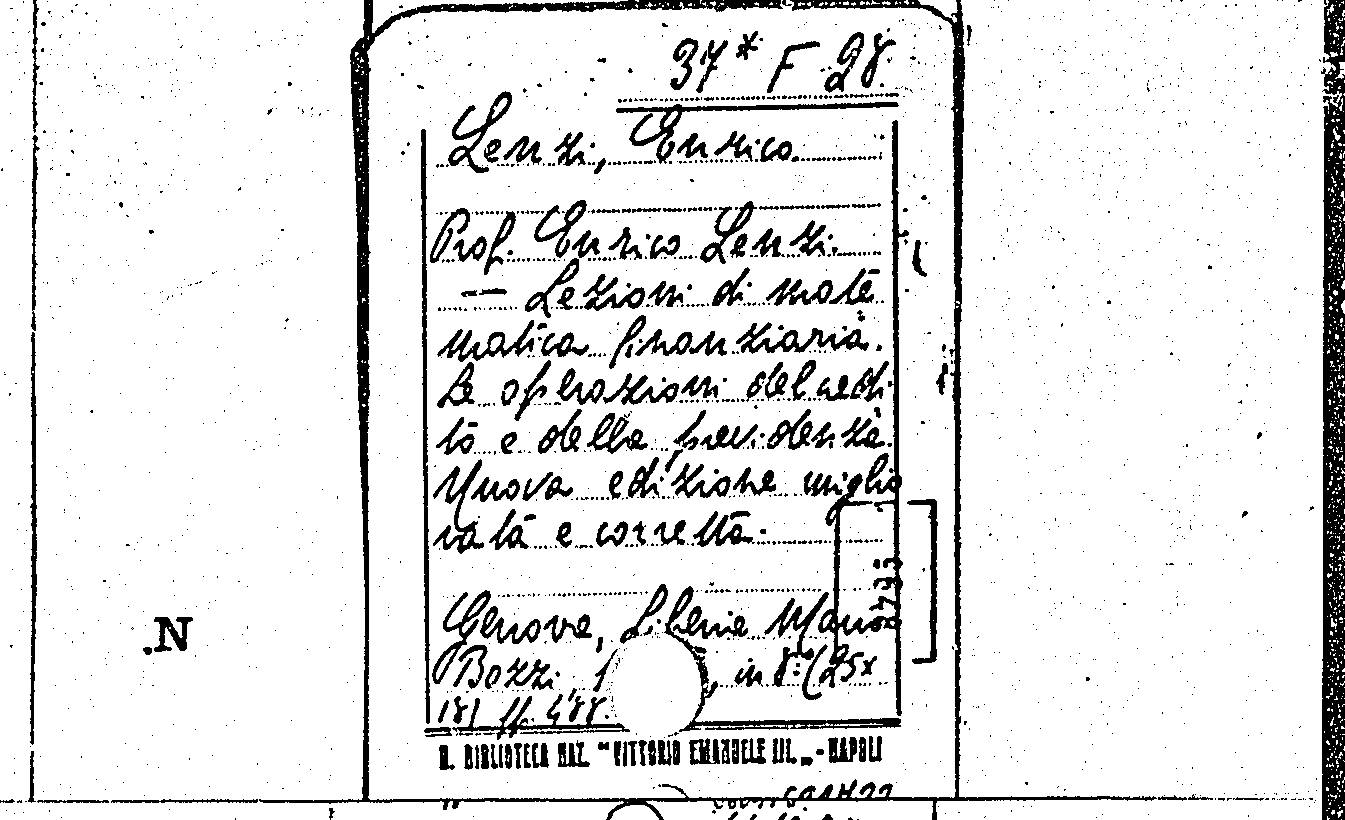 37* F 28.
Lenzi, Enrico.
Prof. Enrico Lenzi.
— Lezioni di mate
matica finanziaria.
Le operazioni del credi
to e della previdenza.
Nuova edizione miglio
rata e corretta.
Genova, Libreria Mario
Bozzi, in 8.° (25x
18) pp. 488.
R. BIBLIOTECA NAZ. "VITTORIO EMANUELE III." - NAPOLI
.N